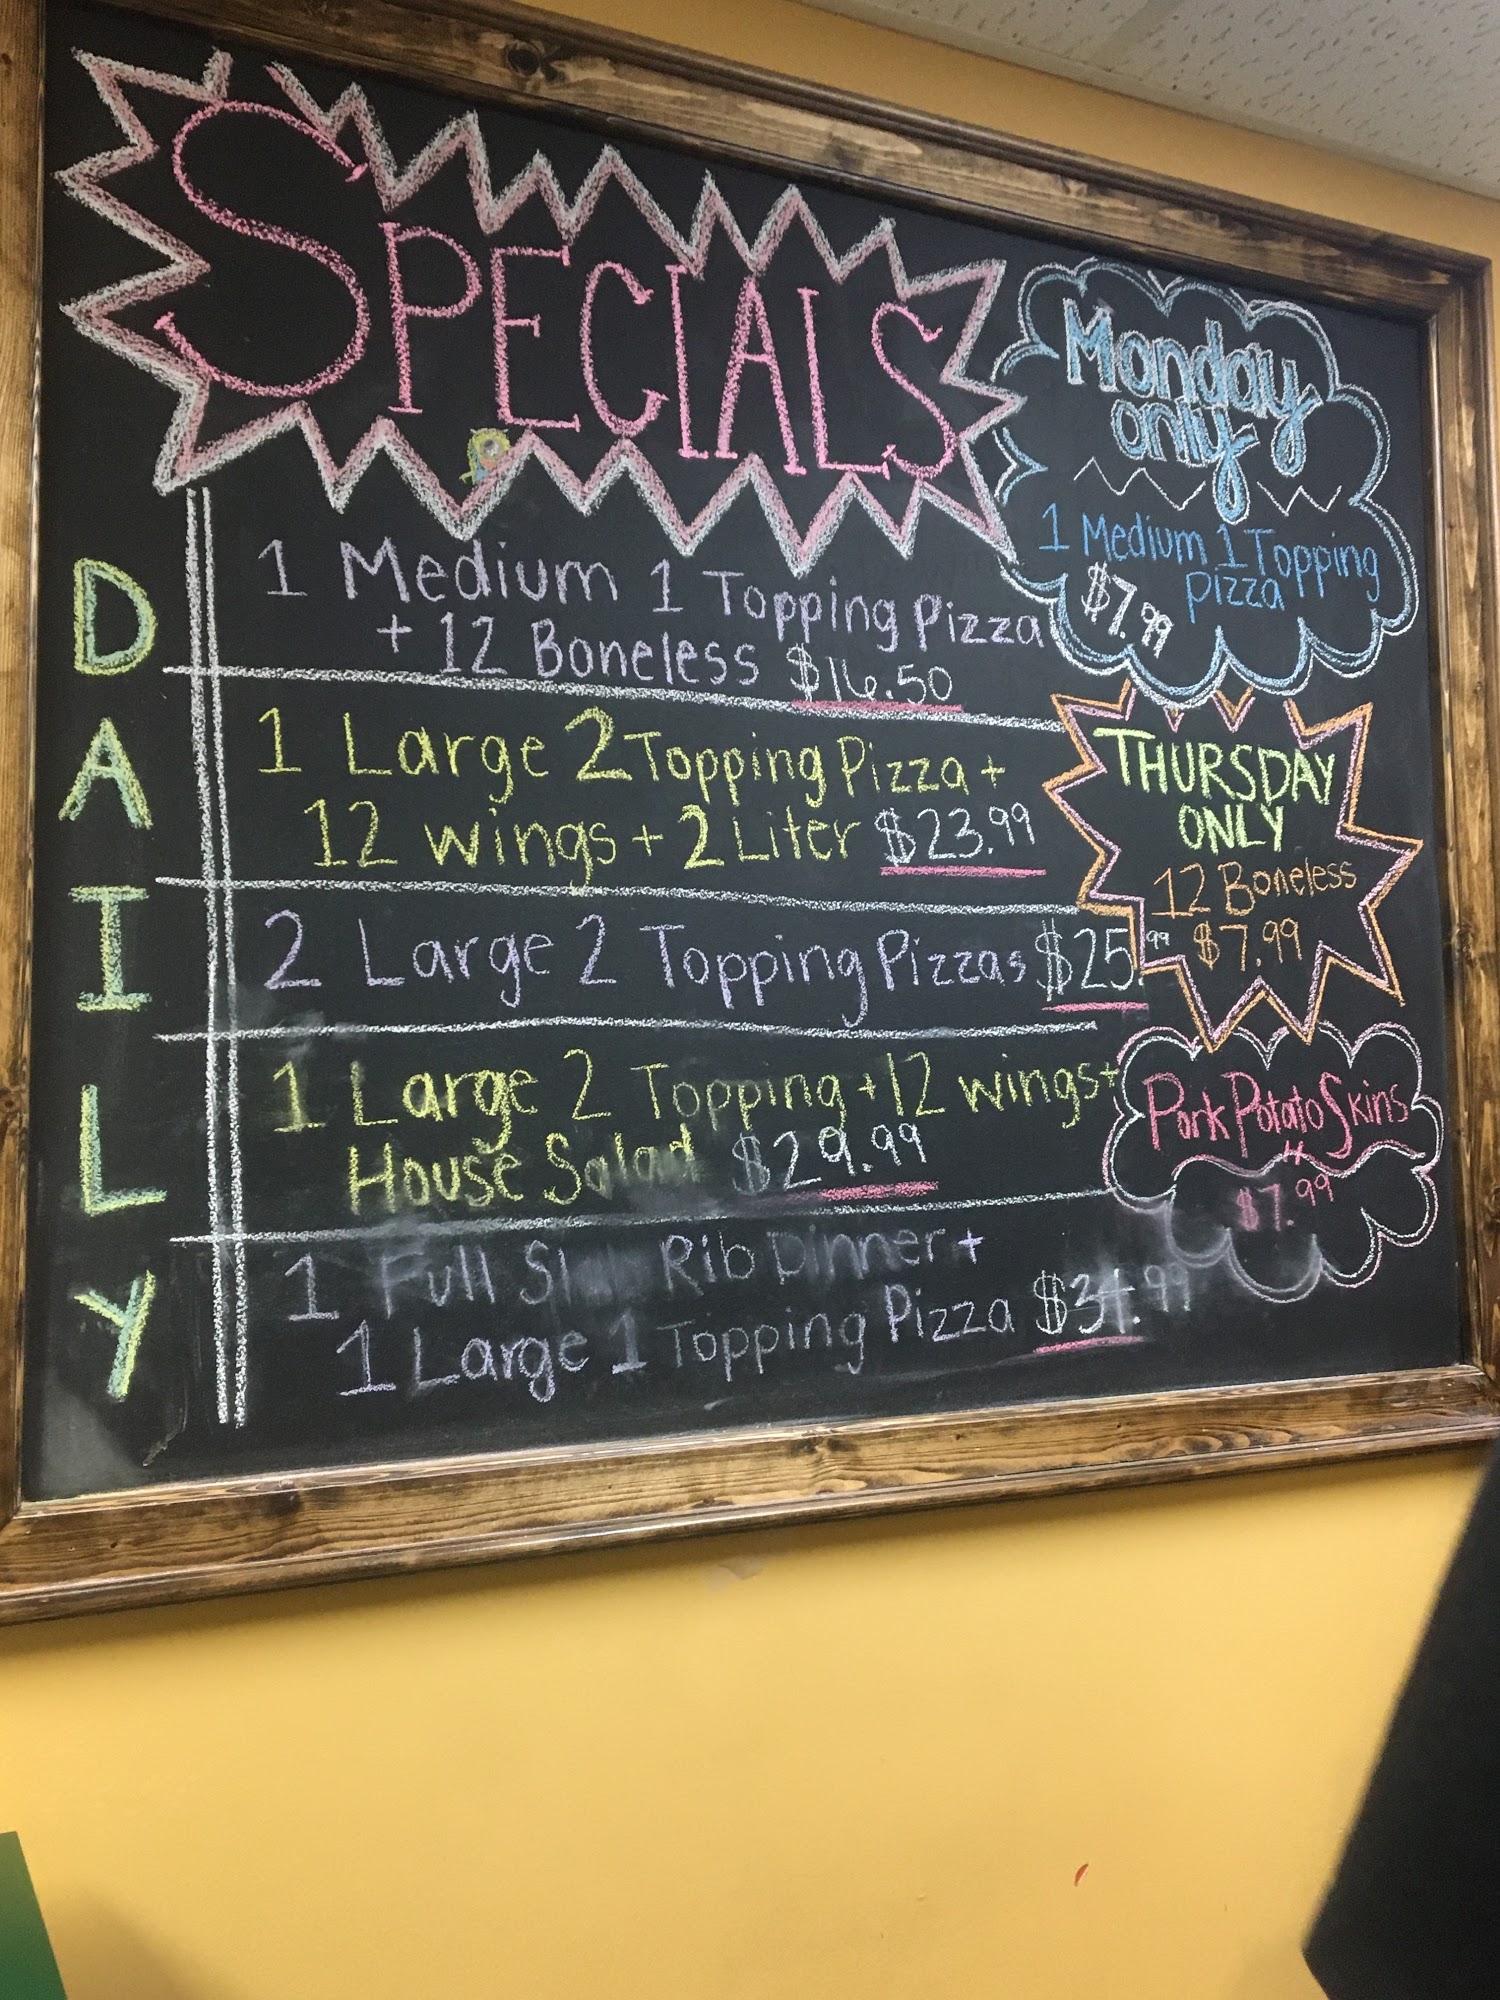 SPECIALS
DAILY
1 Medium 1 Topping Pizza
+ 12 Boneless $16.50
1 Large 2 Topping Pizza +
12 wings + 2 Liter $23.99
2 Large 2 Topping Pizzas $25.99
1 Large 2 Topping + 12 wings +
House Salad $29.99
1 Full Rib Dinner +
1 Large 1 Topping Pizza
Monday
only
1 Medium 1 Topping
Pizza
$7.99
THURSDAY
ONLY
12 Boneless
$7.99
Pork Potato Skins
4
$7.99